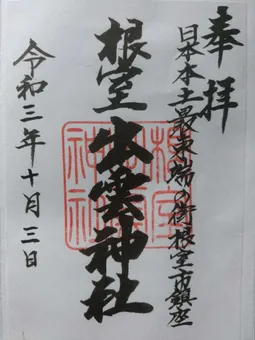 奉拝
日本本土最東端の街根室市鎮座
根室出雲神社
令和三年十月三日
根室
神社